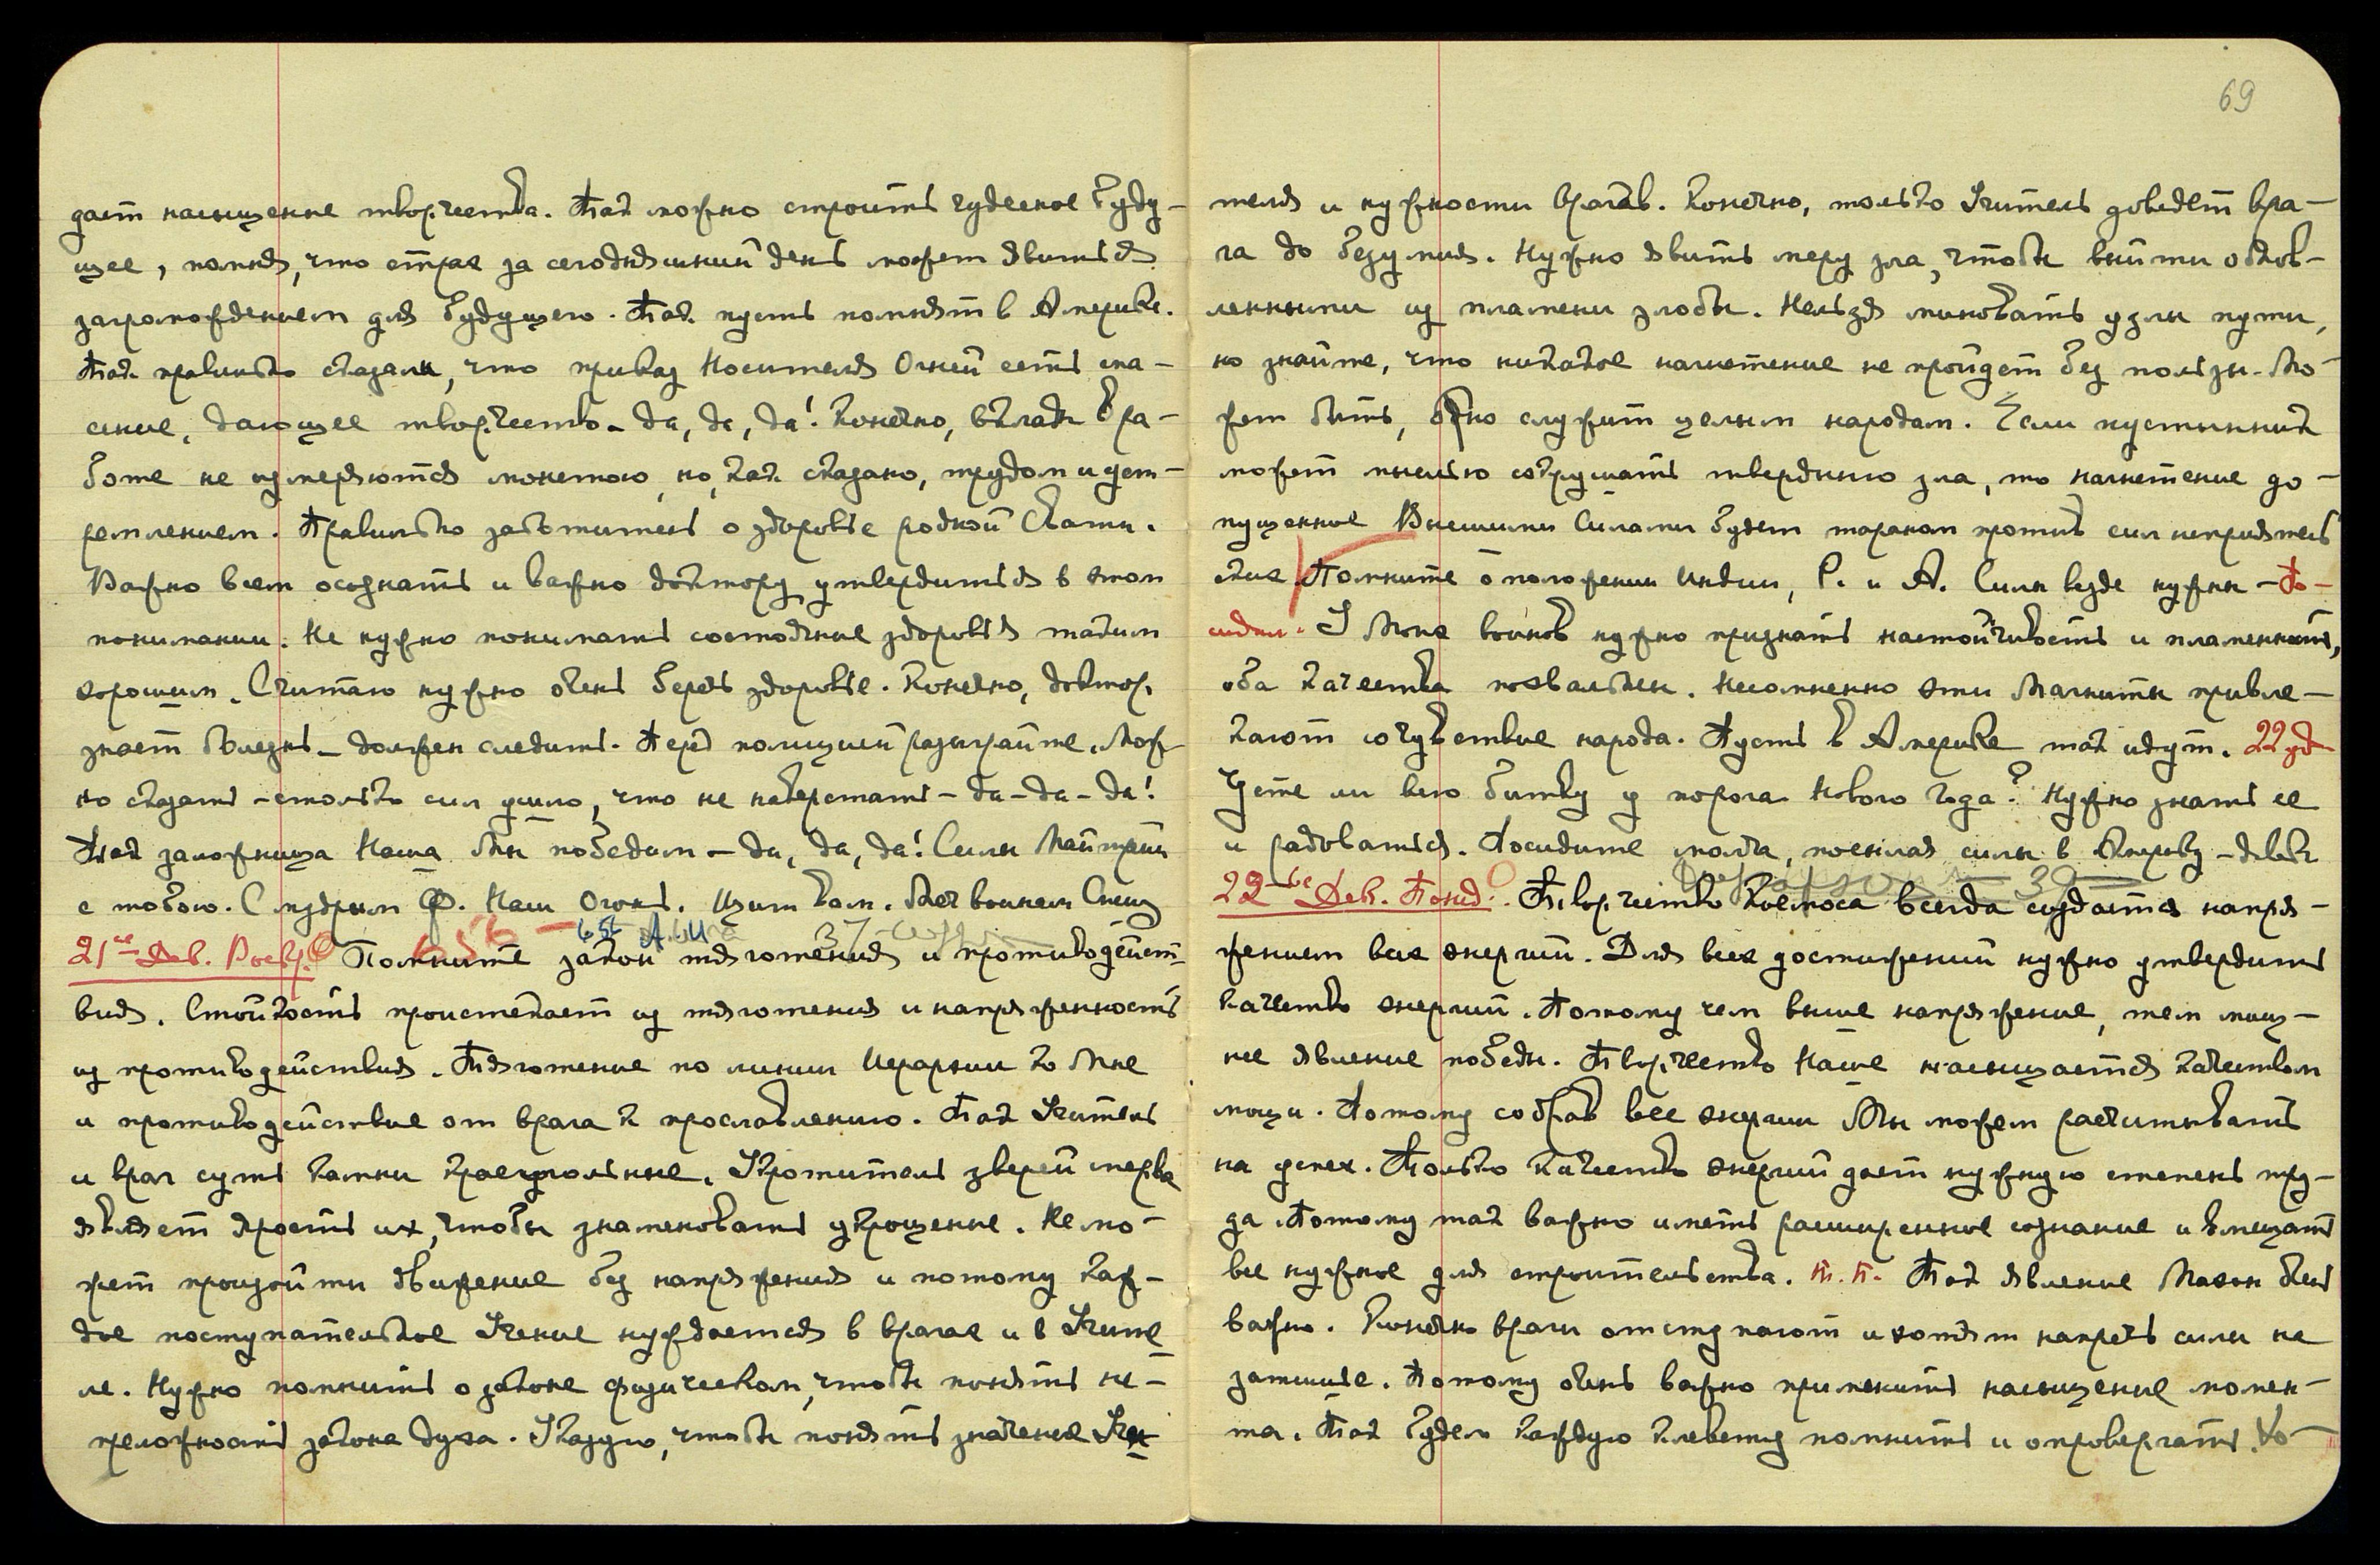 дает насыщенное творчество. Так можно строить чудесное буду-
щее, помня, что страх за сегодняшний день может явиться
загромождением для будущего. Так пусть помнят в Америке.
Так правильно сказали, что приказ Носителя Огней есть спа-
сение, дающее творчество - да, да, да! Конечно, вклады в ра-
боте не измеряются монетою, но, как сказано, трудом и уст-
ремлением. Правильно заботитесь о здоровье родной Святы.
Важно всем осознать и важно доктору утвердиться в этом
понимании. Не нужно понимать состояние здоровья таким
хорошим. Считаю нужно очень беречь здоровье. Конечно, доктор
знает болезнь - должен следить. Перед полицией разыграйте. Мож-
но сказать - столько сил ушло, что не наверстать - да - да - да!
Так заложница Наша Мы победим - да, да, да! Силы Майтрейи
с тобою. С мудрым Ф. Наш Огонь. Щит вам.
21-ое Дек. Воскр. Помните закон тяготения и противодейст-
вия. Стойкость проистекает из тяготения и напряженность
из противодействия. Тяготение по линии Иерархии ко Мне
и противодействие от врага к прославлению. Так Учитель
и враг суть камни краеугольные. Укротитель зверей сперва
являет ярость их, чтобы знаменовать укрощение. Не мо-
жет произойти движение без напряжения и потому каж-
дое поступательное Учение нуждается в врагах и в Учите-
ле. Нужно помнить о законе физическом, чтобы понять не-
преложность закона духа. Указую, чтобы понять значение Учи-
69
теля и нужности врагов. Конечно, только Учитель доведет вра-
га до безумия. Нужно явить меру зла, чтобы выйти обнов-
ленными из пламени злобы. Нельзя миновать узлы пути,
но знайте, что никакое нагнетение не пройдет без пользы. Мо-
жет быть, оно служит целым народам. Если пустынник
может мыслью сокрушать твердыню зла, то нагнетение до-
пущенное Высшими Силами будет тараном против сил неприятель
ских. Помните о положении Индии, Р. и А. Силы везде нужны - По-
сидим. У Моих воинов нужно признать настойчивость и пламенность,
оба качества похвальны. Несомненно эти Магниты привле-
кают сочувствие народа. Пусть в Америке так идут. 22
Чуете ли всю битву у порога Нового Года? Нужно знать ее
и радоваться. Посидите молча, посылая силы в Америку -
22-ое Дек. Понед. Творчество Космоса всегда создается напря-
жением всех энергий. Для всех достижений нужно утвердить
качество энергий. Потому чем выше напряжение, тем мощ-
нее явление победы. Творчество Наше насыщается качеством
мощи. Потому собрав все энергии Мы можем рассчитывать
на успех. Только качество энергий дает нужную степень тру-
да. Потому так важно иметь расширенное сознание и вмещать
все нужное для строительства. Т. П. Так явление Махон очень
важно. Конечно враги отступают и хотят напречь силы на
затишье. Потому очень важно применить насыщение момен-
та. Так будем каждую клевету помнить и опровергать. Хо-